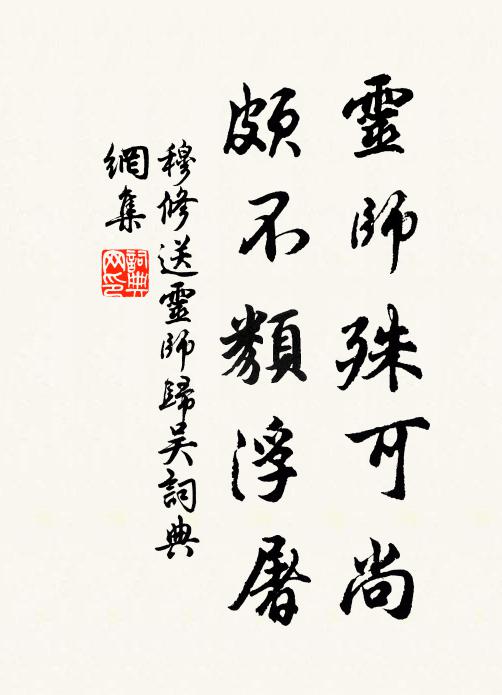 靈師殊可尚
頗不類浮屠
穆修送靈師歸吳詞典
網集
詞典网印